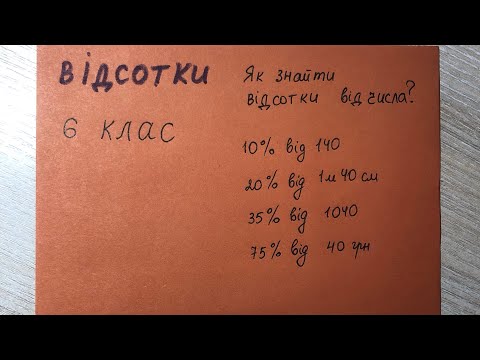 Відсотки
6 клас
Як знайти
відсотки від числа?
10% від 140
20% від 1м 40 см
35% від 1040
75% від 40 грн